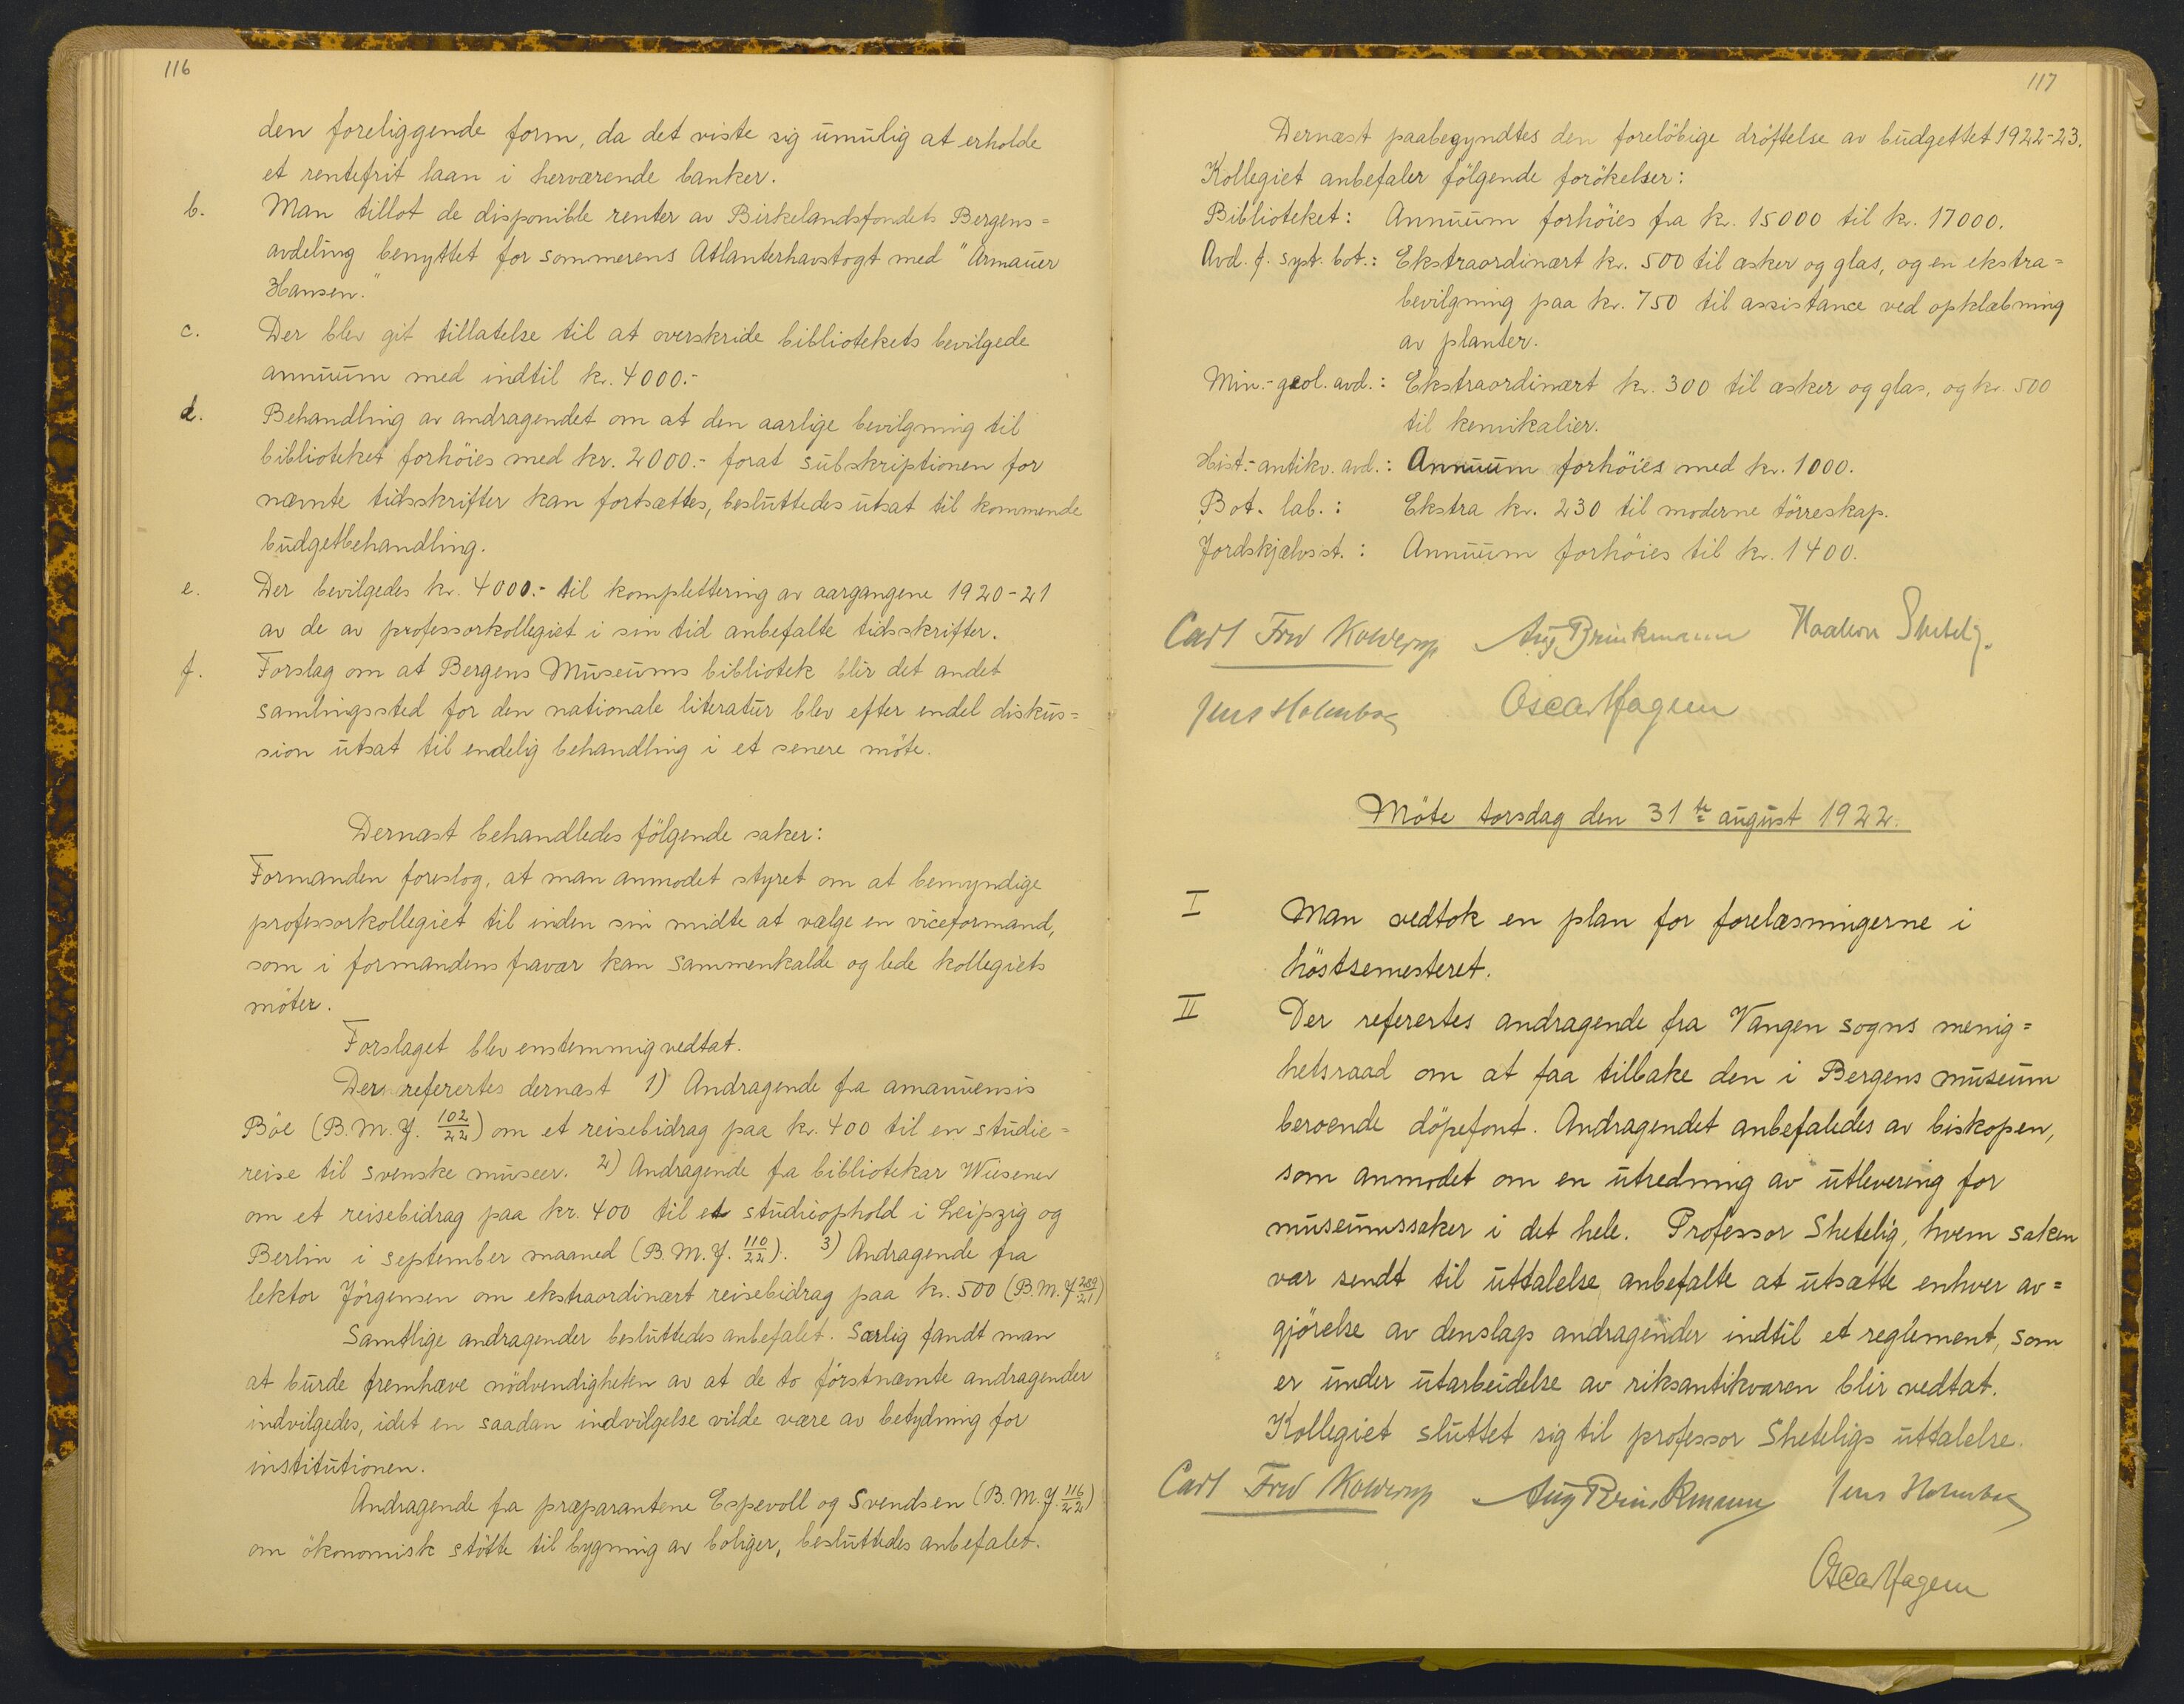 116
den foreliggende form, da det viste sig umulig at erholde
et rentefrit laan i herværende banker.
b. Man tillot de disponible renter av Birkelandsfondets Bergens=
avdeling benyttet for sommerens Atlanterhavstogt med "Armauer
Hansen."
c. Der blev git tillatelse til at overskride bibliotekets bevilgede
annuum med indtil kr. 4000.-
d. Behandling av andragendet om at den aarlige bevilgning til
biblioteket forhöies med kr. 2000.- forat subskriptionen for
nævnte tidsskrifter kan fortsættes, besluttedes utsat til kommende
budgetbehandling.
e. Der bevilgedes kr. 4000.- til komplettering av aargangene 1920-21
av de av professorkollegiet i sin tid anbefalte tidsskrifter.
f. Forslag om at Bergens Museums bibliotek blir det andet
samlingssted for den nationale literatur blev efter endel diskus=
sion utsat til endelig behandling i et senere möte.
Dernæst behandledes fölgende saker:
Formanden foreslog, at man anmodet styret om at bemyndige
professorkollegiet til inden sin midte at vælge en viceformand,
som i formandens fravær kan sammenkalde og lede kollegiets
möter.
Forslaget blev enstemmig vedtat.
Der refertes dernæst 1) Andragende fra amanuensis
Böe (B.M.J. 102/22) om et reisebidrag paa kr. 400 til en studie=
reise til svenske museer. 2) Andragende fra bibliotekar Wiesener
om et reisebidrag paa kr. 400 til et studieophold i Leipzig og
Berlin i september maaned (B.M.J. 110/22). 3) Andragende fra
lektor Jörgensen om ekstraordinært reisebidrag paa kr. 500 (B.M.J. 289/21)
Samtlige andragender besluttedes anbefalet. Særlig fandt man
at burde fremhæve nödvendigheten av at de to förstnævnte andragender
indvilgedes, idet en saadan indvilgelse vilde være av betydning for
institutionen.
Andragende fra præparantene Espevoll og Svendsen (B.M.J. 116/22)
om ökonomisk stötte til bygning av boliger, besluttedes anbefalet.
117
Dernæst paabegyndtes den forelöbige dröftelse av budgettet 1922-23.
Kollegiet anbefaler fölgende forökelser:
Biblioteket: Annuum forhöies fra kr. 15000 til kr. 17000.
Avd. f. syst. bot.: Ekstraordinært kr. 500 til æsker og glas, og en ekstra=
bevilgning paa kr. 750 til assistance ved opklæbning
av planter.
Min.-geol. avd.: Ekstraordinært kr. 300 til æsker og glas, og kr. 500
til kemikalier.
Hist.-antikv. avd.: Annuum forhöies med kr. 1000.
Bot. lab.: Ekstra kr. 230 til moderne törreskap.
Jordskjælvsst.: Annuum forhöies til kr. 1400.
Carl Fred Kolderup Aug Brinkmann Haakon Shetelig.
Jens Holmboe Oscar Hagem
Möte torsdag den 31te august 1922.
I Man vedtok en plan for forelæsningerne i
höstsemesteret.
II Der refertes andragende fra Vangen sogns menig=
hetsraad om at faa tilbake den i Bergens museum
beroende döpefont. Andragendet anbefaledes av biskopen,
som anmodet om en utredning av utlevering for
museumssaker i det hele. Professor Shetelig, hvem saken
var sendt til uttalelse anbefalte at utsætte enhver av=
gjörelse av denslags andragender indtil et reglement, som
er under utarbeidelse av riksantikvaren blir vedtat.
Kollegiet sluttet sig til professor Sheteligs uttalelse.
Carl Fred Kolderup Aug Brinkmann Jens Holmboe
Oscar Hagem